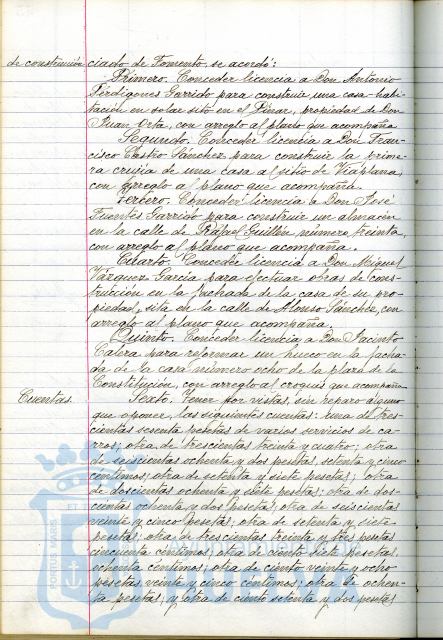 de construcción ciado de Fomento, se acordó:
Primero. Conceder licencia a Don Antonio
Pérdigones Garrido para construir una casa habi-
tación en solar sito en el Pinar, propiedad de Don
Juan Orta, con arreglo al plano que acompaña
Segundo. Conceder licencia a Don Fran-
cisco Castro Sánchez para construir la prime-
ra crujia de una casa al sitio de Viaplana,
con arreglo al plano que acompaña.
Tercero. Conceder licencia a Don José
Fuentes Garrido para construir un almacén
en la calle de Rafael Guillén número treinta,
con arreglo al plano que acompaña.
Cuarto. Conceder licencia a Don Miguel
Vázquez García para efectuar obras de cons-
trucción en la fachada de la casa de su pro-
piedad, sita en la calle de Alonso Sánchez, con
arreglo al plano que acompaña.
Quinto. Conceder licencia a Don Jacinto
Calera para reformar un hueco en la facha-
da de la casa número ocho de la plaza de la
Constitución, con arreglo al croquis que acompaña
Cuentas. Sexto. Tener por vistas, sin reparo alguno
que oponer, las siguientes cuentas: una de tres-
cientas sesenta pesetas de varios servicios de ca-
rros; otra de trescientas treinta y cuatro; otra
de seiscientas ochenta y dos pesetas, setenta y cinco
céntimos; otra de setenta y siete pesetas; otra
de doscientas ochenta y siete pesetas; otra de dos-
cientas ochenta y dos pesetas; otra de seiscientas
veinte y cinco pesetas; otra de setenta y siete
pesetas; otra de trescientas treinta y tres pesetas
cincuenta céntimos; otra de ciento siete pesetas,
ochenta céntimos; otra de ciento veinte y ocho
pesetas veinte y cinco céntimos; otra de ochen-
ta pesetas; y otra de ciento setenta y dos pesetas
PORTUS MARIS ET